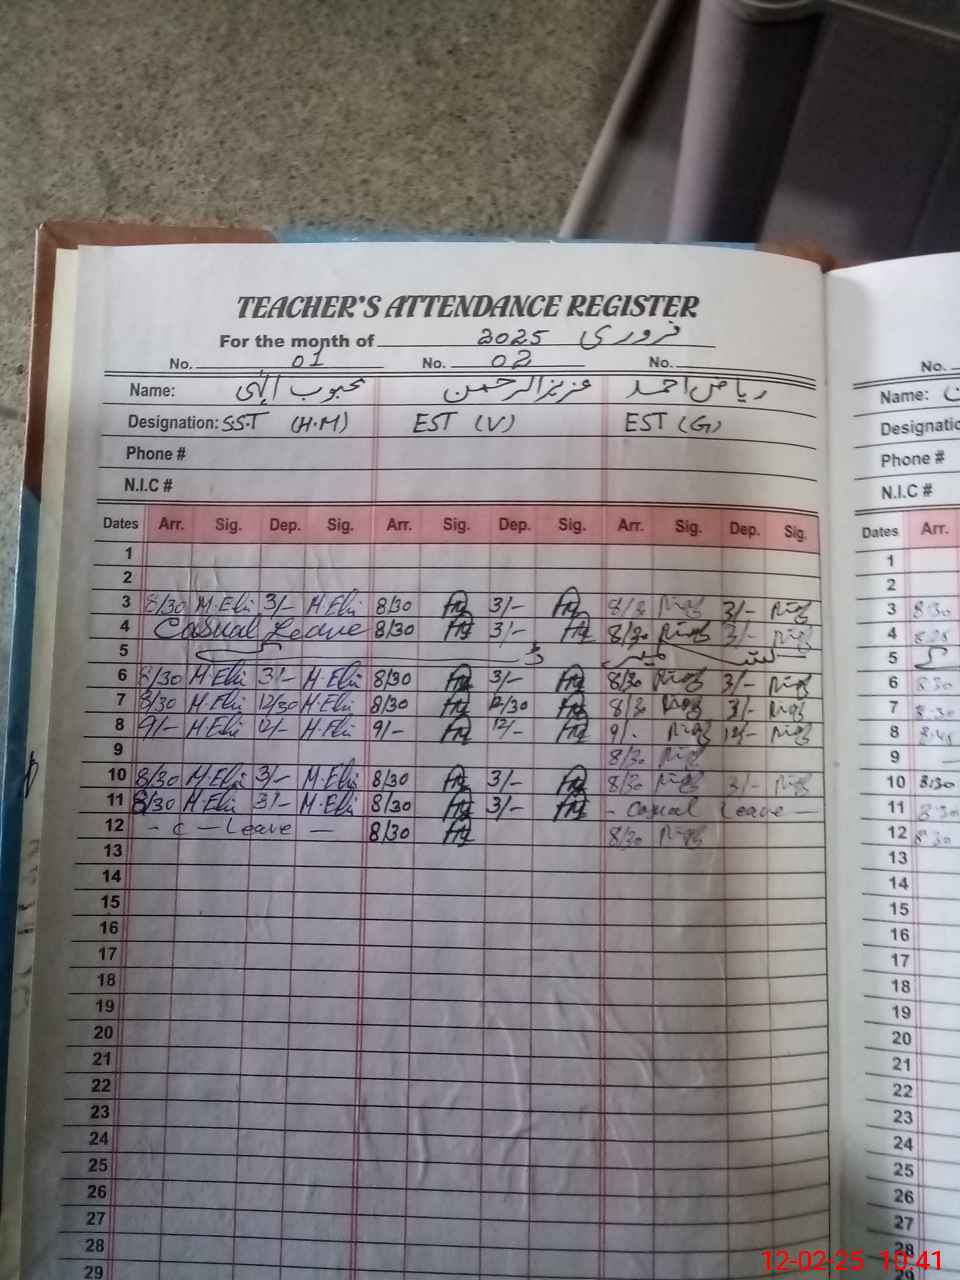 TEACHER'S ATTENDANCE REGISTER
For the month of فروری 2025
No. 01 No. 02 No.
Name: محبوب الہی عزیز الرحمن ریاض احمد
Designation: S.S.T (H.M) EST (V) EST (G)
Phone #
N.I.C #
Dates Arr. Sig. Dep. Sig. Arr. Sig. Dep. Sig. Arr. Sig. Dep. Sig.
1
2
3 8/30 M.Elhi 3/- M.Elhi 8/30 3/- 8/30 3/-
4 Casual Leave 8/30 3/- 8/30 3/-
5 کشمیر ڈے
6 8/30 M.Elhi 3/- M.Elhi 8/30 3/- 8/30 3/-
7 8/30 M.Elhi 12/30 M.Elhi 8/30 12/30 8/30 3/-
8 9/- M.Elhi 12/- M.Elhi 9/- 12/- 9/- 12/-
9 8/30
10 8/30 M.Elhi 3/- M.Elhi 8/30 3/- 8/30 3/-
11 8/30 M.Elhi 3/- M.Elhi 8/30 3/- - Casual Leave -
12 - C - Leave - 8/30 8/30
13
14
15
16
17
18
19
20
21
22
23
24
25
26
27
28
29
No.
Name:
Phone #
N.I.C #
Dates Arr.
1
2
3 8:30
4
5
6 8:30
7 8:30
8 8:45
9
10 8:30
11 8:30
12 8:30
13
14
15
16
17
18
19
20
21
22
23
24
25
26
27
28
29
12-02-25 10:41